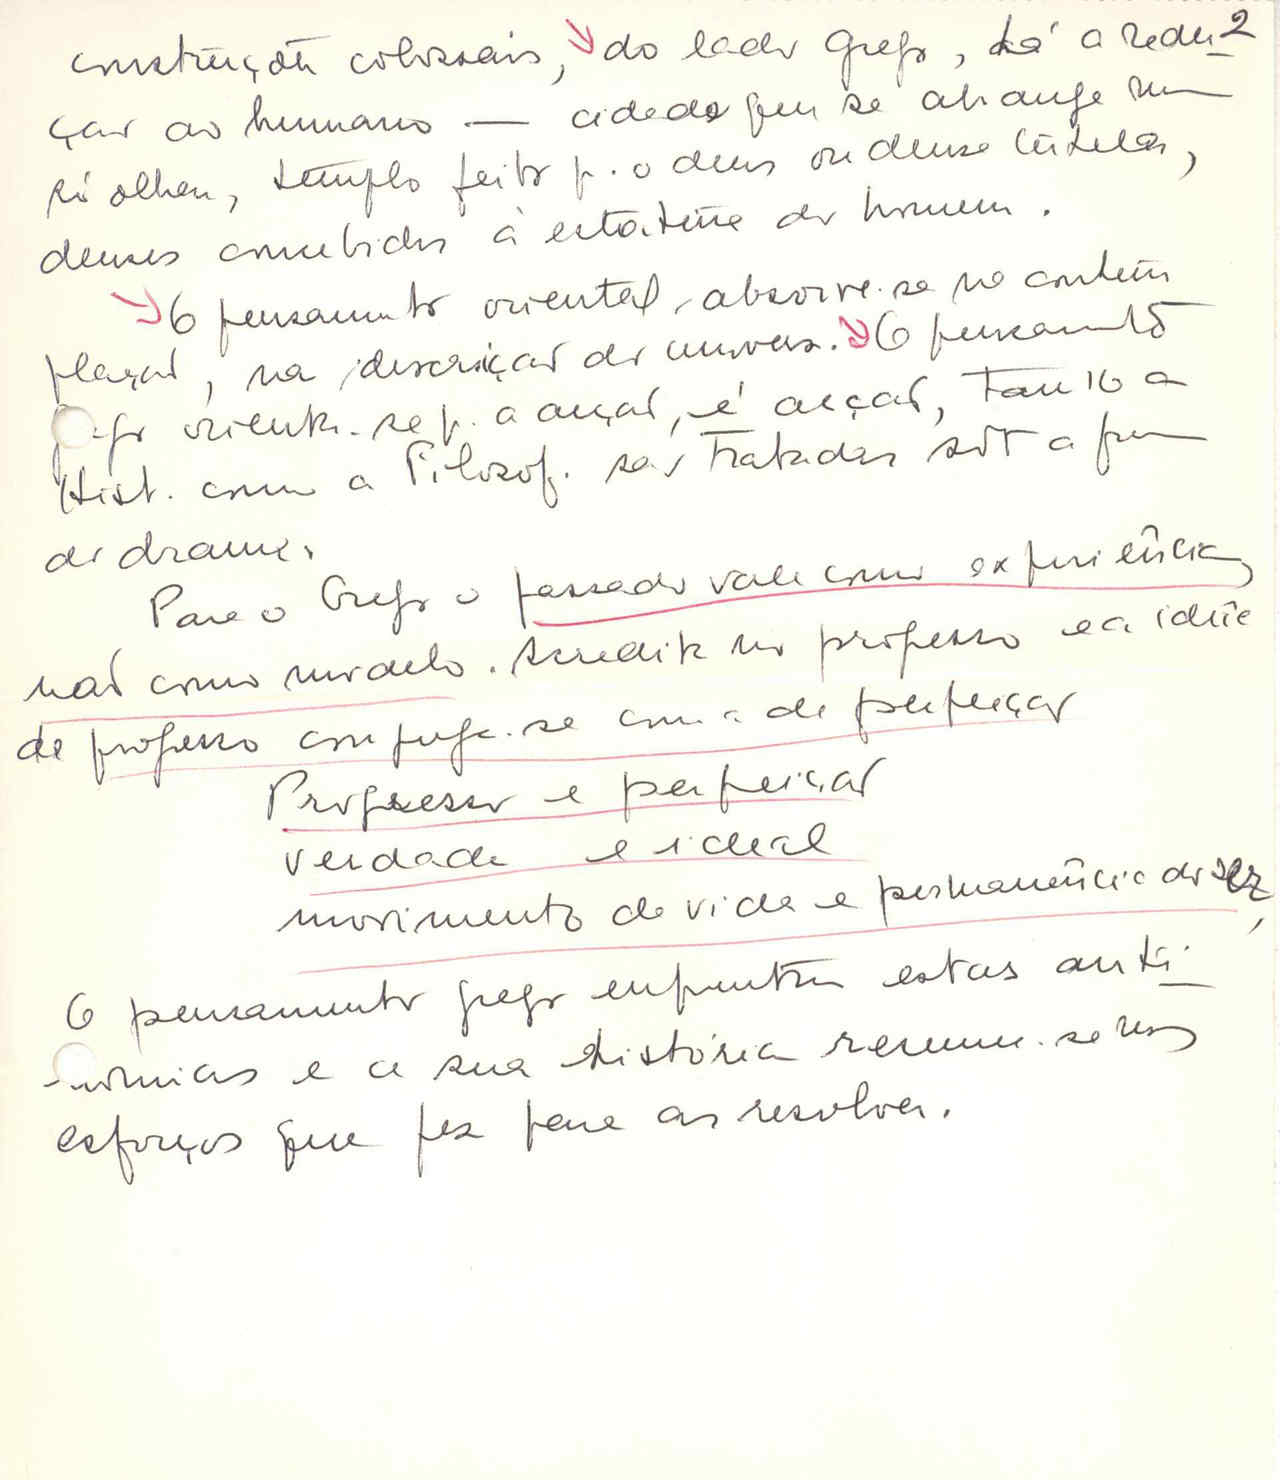 2
construções colossais, do lado grego, há a redu-
ção ao humano — cidade que se abrange num
só olhar, templo feito p. o deus ou deusa tutelar,
deuses concebidos à estatura do homem.
O pensamento oriental absorve-se na contem
plação, na descrição do universo. O pensamento
grego orienta-se p. a acção, é acção, Tanto a
Hist. como a Filosof. são tratadas sob a forma
de drama.
Para o Grego o passado vale como experiência,
não como modelo. Acredita no progresso e a ideia
de progresso conjuga-se com a de perfeição
Progresso e perfeição
verdade e ideal
movimento da vida e permanência do ser,
O pensamento grego enfrentou estas anti-
nomias e a sua história resume-se nos
esforços que fez para as resolver.